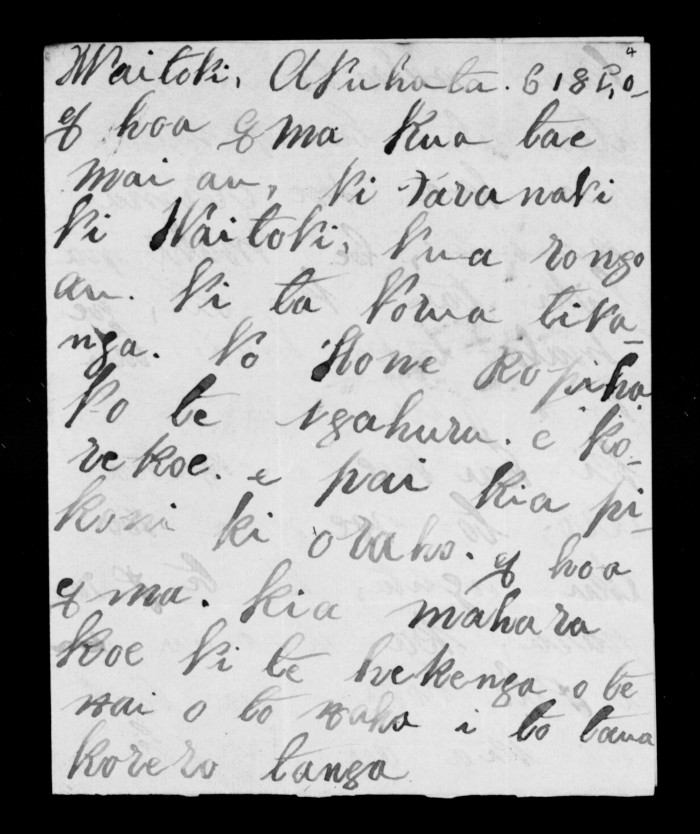 4
Waitoki, Akuhata. 6 1850
E hoa E ma Kua tae
mai au, ki Taranaki
ki Waitoki, kua rongo
au. ki ta korua tika-
nga. ko Hone Ropiha
ko te ngahuru. e ko-
re koe. e pai kia pi-
koni ki oraho. E hoa
E ma. kia mahara
koe ki te hekenga o te
wai o to waha i to taua
korero tanga